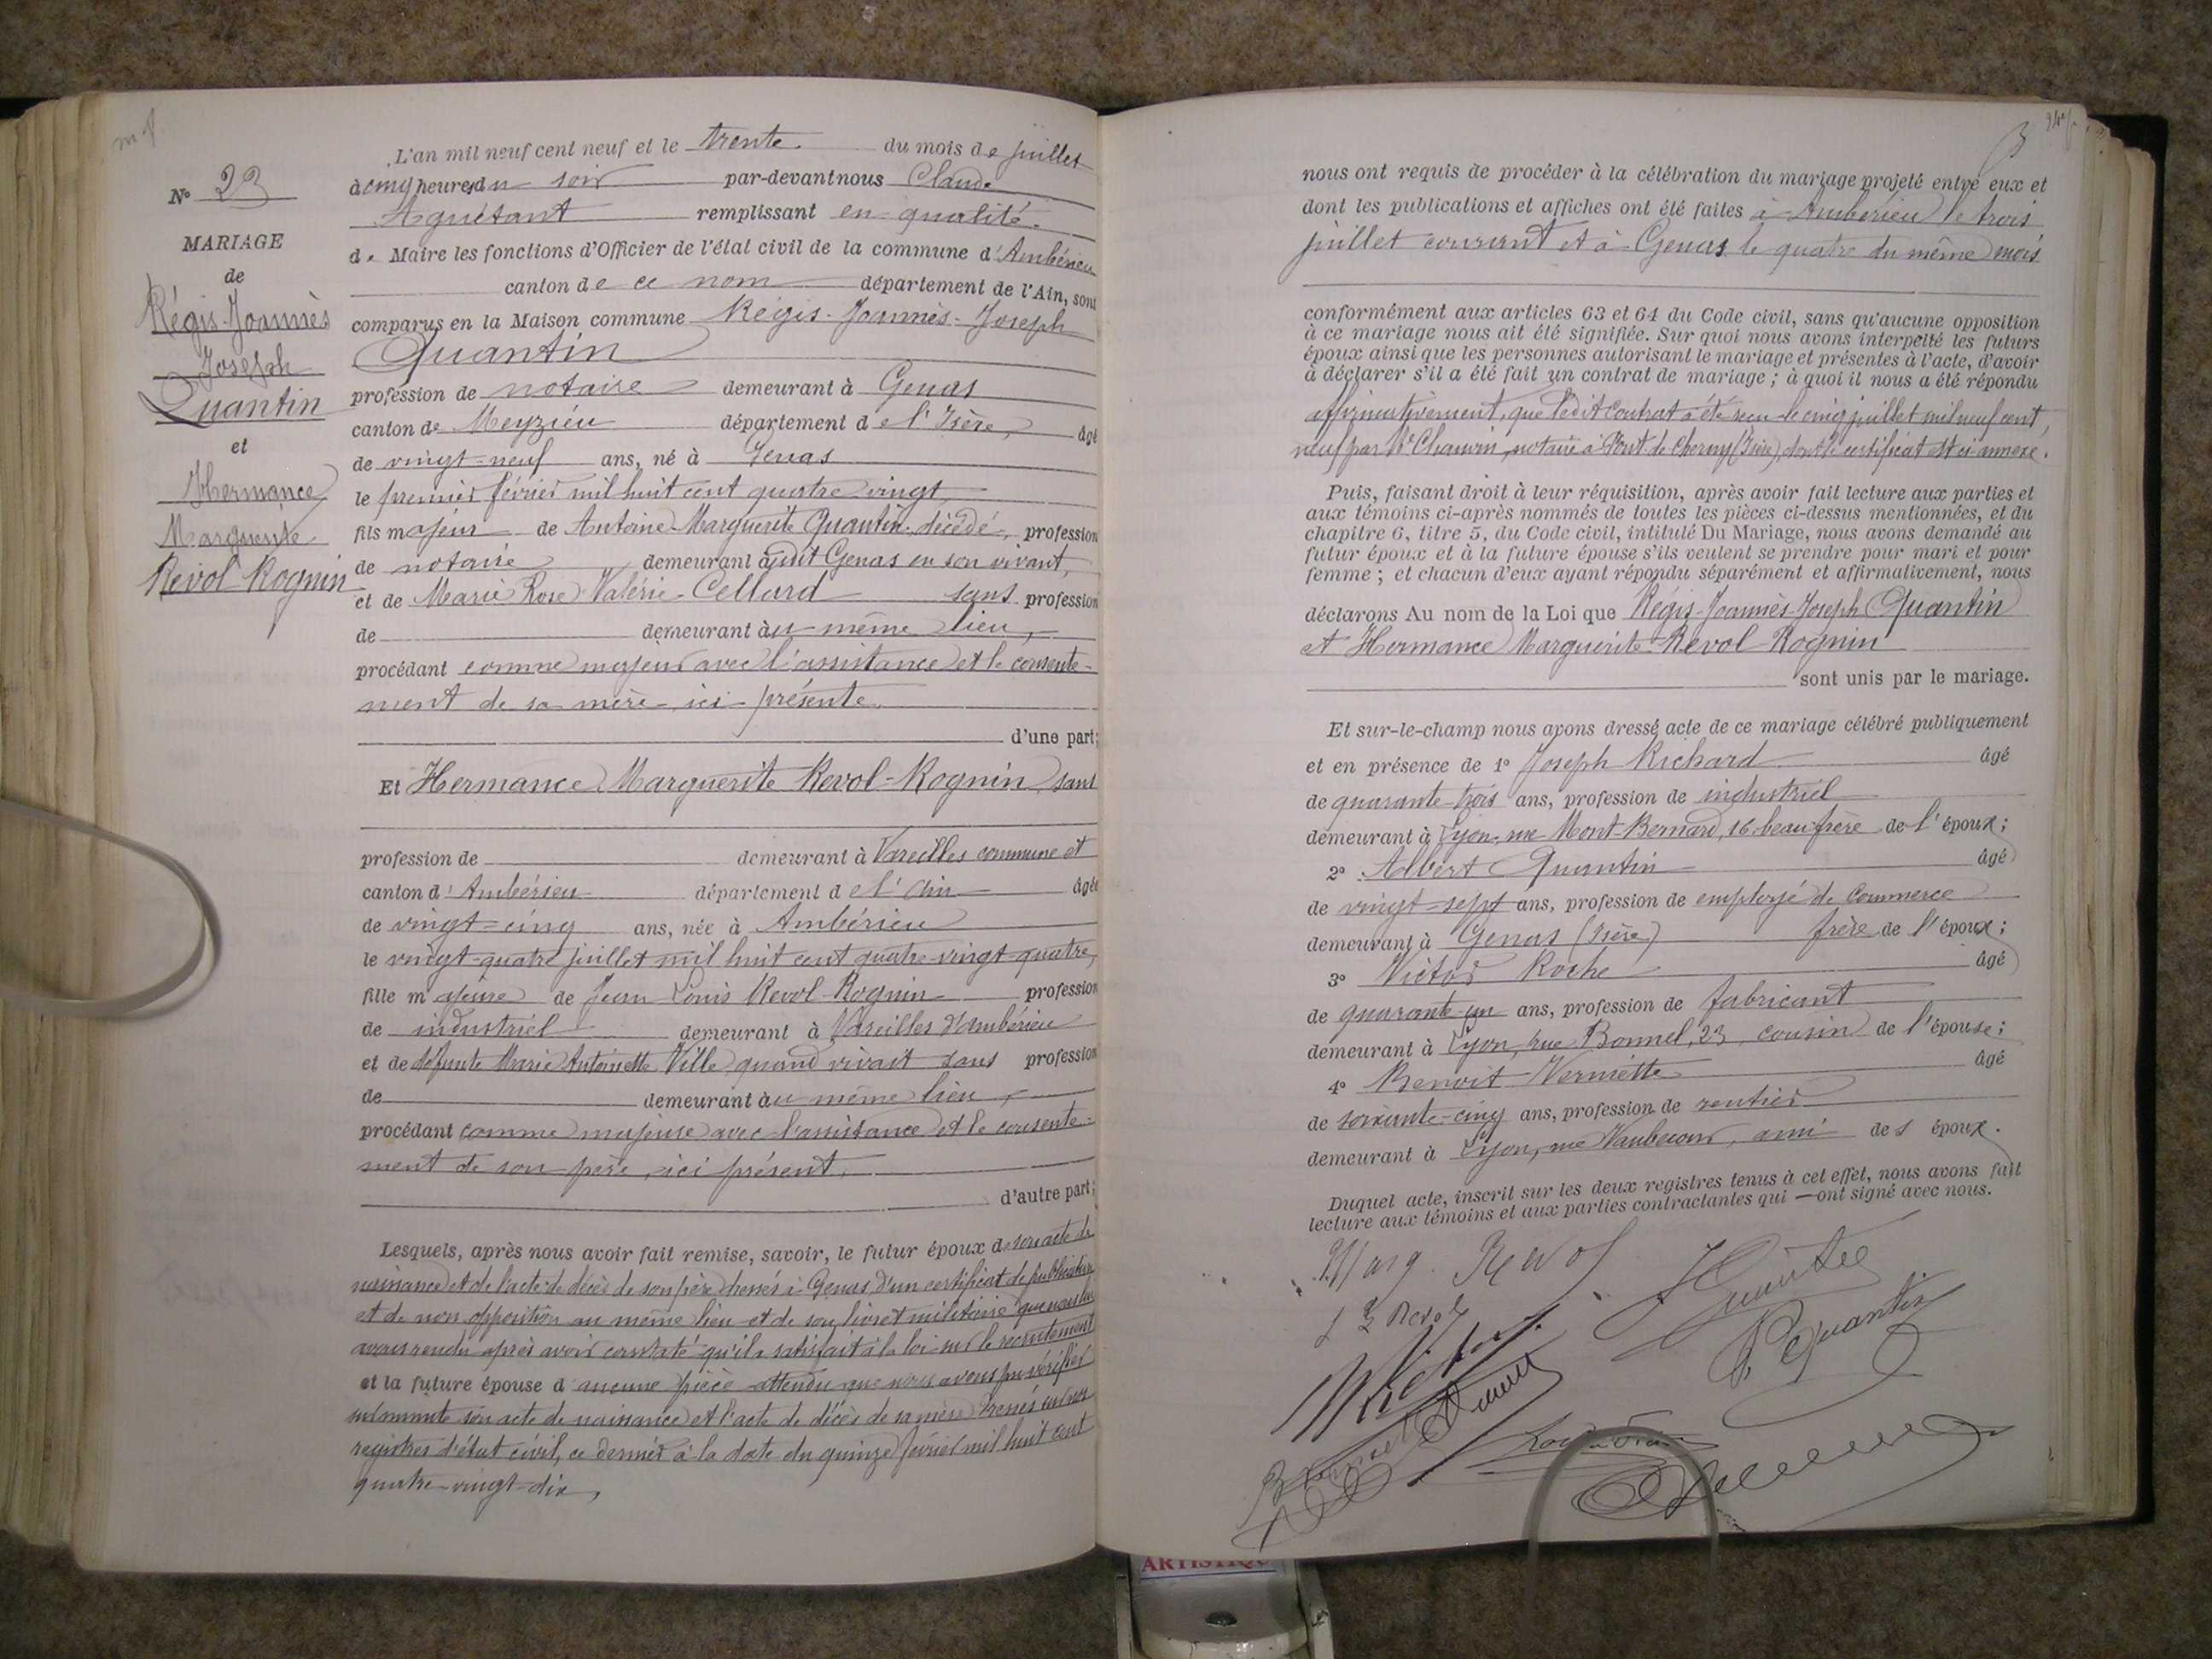 N° 23
MARIAGE
de
Régis-Joannès
Joseph
Quantin
et
Hermance
Marguerite
Revol-Rognin
L'an mil neuf cent neuf et le trente du mois de juillet
à cinq heures du soir par-devant nous Claude
Aguétant remplissant en qualité
de Maire les fonctions d'Officier de l'état civil de la commune d'Ambérieu
canton de ce nom département de l'Ain, sont
comparus en la Maison commune Régis-Joannès-Joseph
Quantin
profession de notaire demeurant à Genas
canton de Meyzieu département de l'Isère, âgé
de vingt-neuf ans, né à Genas
le premier février mil huit cent quatre vingt,
fils majeur de Antoine-Marguerite Quantin, décédé, profession
de notaire demeurant audit Genas en son vivant,
et de Marie Rose Valérie Cellard sans profession
de demeurant au même lieu,
procédant comme majeur avec l'assistance et le consente-
ment de sa mère ici présente
d'une part;
Et Hermance Marguerite Revol-Rognin, sans
profession de demeurant à Vareilles commune et
canton d'Ambérieu département de l'Ain âgée
de vingt-cinq ans, née à Ambérieu
le vingt-quatre juillet mil huit cent quatre-vingt-quatre,
fille majeure de Jean Louis Revol-Rognin profession
de industriel demeurant à Vareilles d'Ambérieu
et de défunte Marie Antoinette Ville quand vivait sans profession
de demeurant au même lieu,
procédant comme majeure avec l'assistance et le consente-
ment de son père, ici présent,
d'autre part;
Lesquels, après nous avoir fait remise, savoir, le futur époux de son acte de
naissance et de l'acte de décès de son père dressés à Genas, d'un certificat de publication
et de non opposition au même lieu et de son livret militaire que nous lui
avons rendu après avoir constaté qu'il a satisfait à la loi sur le recrutement
et la future épouse d'aucune pièce attendu que nous avons pu vérifier
son acte de naissance et l'acte de décès de sa mère dressés sur nos
registres d'état civil, ce dernier à la date du quinze février mil huit cent
quatre-vingt-dix,
nous ont requis de procéder à la célébration du mariage projeté entre eux et
dont les publications et affiches ont été faites à Ambérieu le trois
juillet courant et à Genas le quatre du même mois
conformément aux articles 63 et 64 du Code civil, sans qu'aucune opposition
à ce mariage nous ait été signifiée. Sur quoi nous avons interpellé les futurs
époux ainsi que les personnes autorisant le mariage et présentes à l'acte, d'avoir
à déclarer s'il a été fait un contrat de mariage; à quoi il nous a été répondu
affirmativement, que ledit contrat a été reçu le cinq juillet mil neuf cent
neuf par Me Chauvin, notaire à Pont-de-Cheruy (Isère), dont le certificat est ci-annexé.
Puis, faisant droit à leur réquisition, après avoir fait lecture aux parties et
aux témoins ci-après nommés de toutes les pièces ci-dessus mentionnées, et du
chapitre 6, titre 5, du Code civil, intitulé Du Mariage, nous avons demandé au
futur époux et à la future épouse s'ils veulent se prendre pour mari et pour
femme; et chacun d'eux ayant répondu séparément et affirmativement, nous
déclarons Au nom de la Loi que Régis-Joannès-Joseph Quantin
et Hermance Marguerite Revol-Rognin
sont unis par le mariage.
Et sur-le-champ nous avons dressé acte de ce mariage célébré publiquement
et en présence de 1° Joseph Richard âgé
de quarante-trois ans, profession de industriel
demeurant à Lyon, rue Mont-Bernard, 16 beau-frère de l'époux;
2° Albert Quantin âgé
de vingt-sept ans, profession de employé de commerce
demeurant à Genas (Isère) frère de l'époux;
3° Victor Roche âgé
de quarante-un ans, profession de fabricant
demeurant à Lyon, rue Bonnel, 23, cousin de l'épouse;
4° Benoit Vermette âgé
de soixante-cinq ans, profession de rentier
demeurant à Lyon, rue Vaubecour, ami des époux.
Duquel acte, inscrit sur les deux registres tenus à cet effet, nous avons fait
lecture aux témoins et aux parties contractantes qui ont signé avec nous.
Marg. Revol
Quantin
Revol
Quantin
ARTISTIQU